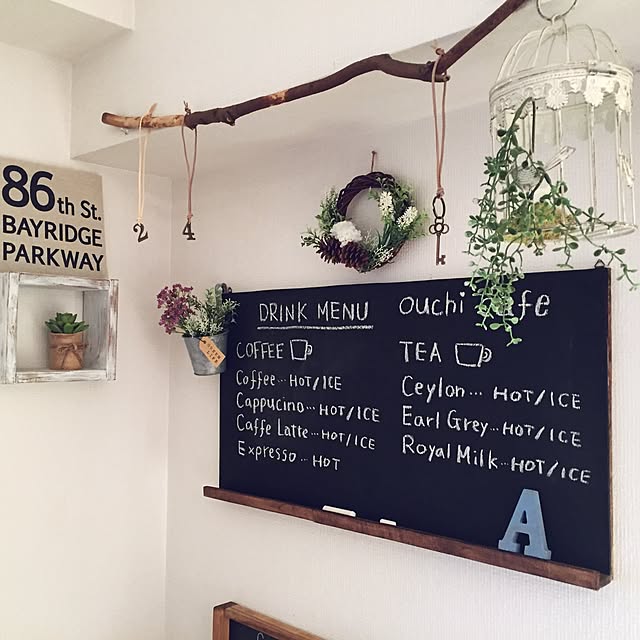 86th St.
BAYRIDGE
PARKWAY
2 4
DRINK MENU
COFFEE
Coffee... HOT/ICE
Cappucino... HOT/ICE
Caffe Latte... HOT/ICE
Expresso... HOT
ouchi cafe
TEA
Ceylon... HOT/ICE
Earl Grey... HOT/ICE
Royal Milk... HOT/ICE
A